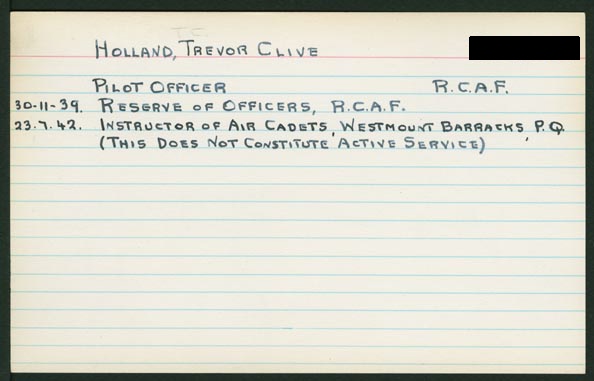 HOLLAND, TREVOR CLIVE
PILOT OFFICER R.C.A.F.
30-11-39. RESERVE OF OFFICERS, R.C.A.F.
23.7.42. INSTRUCTOR OF AIR CADETS, WESTMOUNT BARRACKS, P.Q.
(THIS DOES NOT CONSTITUTE ACTIVE SERVICE)